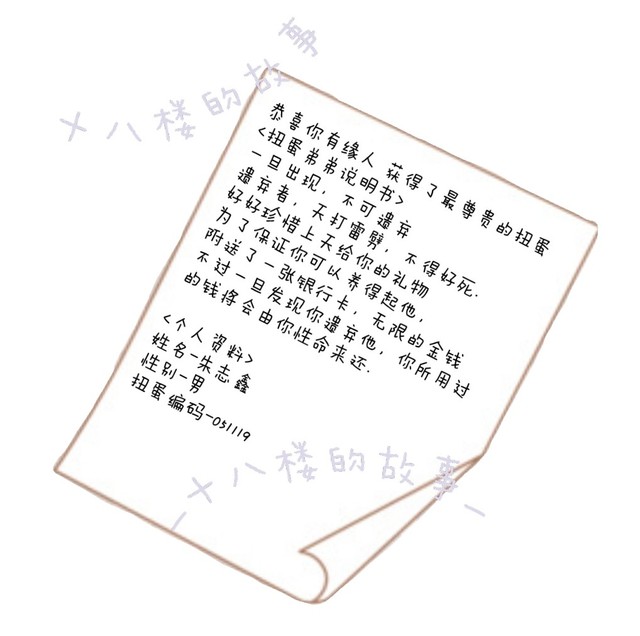 十八楼的故事
恭喜你有缘人 获得了最尊贵的扭蛋
<扭蛋弟弟说明书>
一旦出现，不可遗弃
遗弃者，天打雷劈，不得好死.
好好珍惜上天给你的礼物
为了保证你可以养得起他，
附送了一张银行卡，无限的金钱
不过一旦发现你遗弃他，你所用过
的钱将会由你性命来还.
<个人资料>
姓名-朱志鑫
性别-男
扭蛋编码-051119
-十八楼的故事-